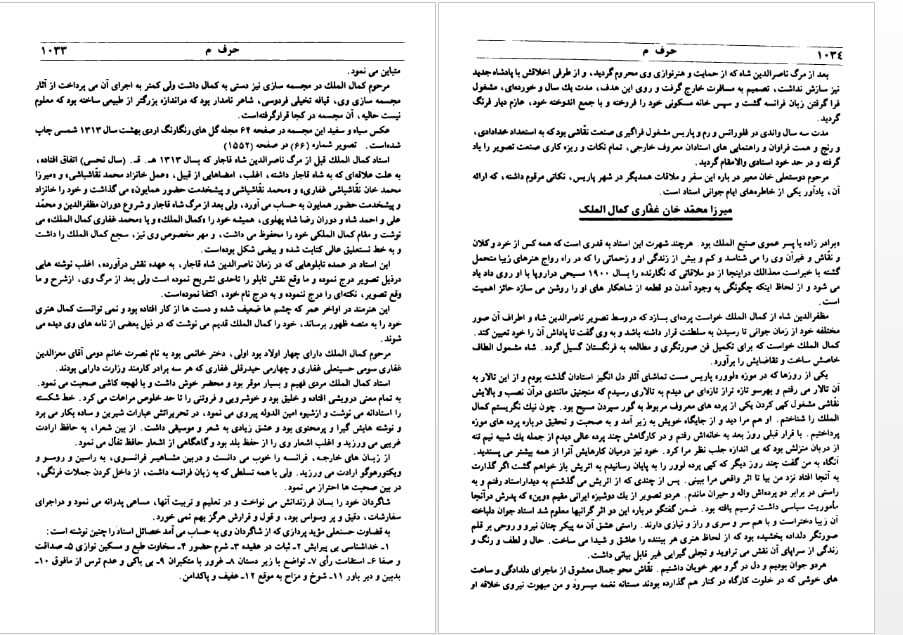 ۱۰۳۳
حرف م
متباین می نمود.
مرحوم کمال الملك در مجسمه سازی نیز دستی به کمال داشت ولی کمتر به اجرای آن می پرداخت از آثار
مجسمه سازی وی، قیافه تخیلی فردوسی، شاعر نامدار بود که دراندازه بزرگتر از طبیعی ساخته بود که معلوم
نیست حالیه، آن مجسمه در کجا قرارگرفته‌است.
عکس سیاه و سفید این مجسمه در صفحه ۶۴ مجله گل های رنگارنگ اردی بهشت سال ۱۳۱۳ شمسی چاپ
شده‌است. تصویر شماره (۶۶) در صفحه (۱۵۵۲)
استاد کمال الملك قبل از مرگ ناصرالدین شاه قاجار که بسال ۱۳۱۳ هـ. ق. (سال نحسی) اتفاق افتاده،
به علت علاقه‌ای که به شاه قاجار داشته، اغلب، امضاهایی از قبیل، «عمل خانزاد محمد نقاشباشی» و «میرزا
محمد خان نقاشباشی غفاری» و «محمد نقاشباشی و پیشخدمت حضور همایون» می گذاشت و خود را خانزاد
و پیشخدمت حضور همایون به حساب می آورد، ولی بعد از مرگ شاه قاجار و شروع دوران مظفرالدین و محمد
علی و احمد شاه و دوران رضا شاه پهلوی، همیشه خود را «کمال الملك» و یا «محمد غفاری کمال الملك» می
نوشت و مقام کمال الملکی خود را محفوظ می داشت، و مهر مخصوص وی نیز، سجع کمال الملك را داشت
و به خط نستعلیق عالی کتابت شده و بیضی شکل بوده‌است.
این استاد در عمده تابلوهایی که در زمان ناصرالدین شاه قاجار، به عهده نقش درآورده، اغلب نوشته هایی
درذیل تصویر درج نموده و ما وقع نقش تابلو را تاحدی تشریح نموده است ولی بعد از مرگ وی، ازشرح و ما
وقع تصویر، نکته‌ای را درج ننموده و به درج نام خود، اکتفا نموده‌است.
این هنرمند در اواخر عمر که چشم ها ضعیف شده و دست ها از کار افتاده بود و نمی توانست کمال هنری
خود را به منصه ظهور برساند، خود را کمال الملك قدیم می نوشت که در ذیل بعضی از نامه های وی دیده می
شوند.
مرحوم کمال الملك دارای چهار اولاد بود اولی، دختر خانمی بود به نام نصرت خانم دومی آقای معزالدین
غفاری سومی حسینعلی غفاری و چهارمی حیدرقلی غفاری که هر سه برادر کارمند وزارت دارایی بودند.
استاد کمال الملك مردی فهیم و بسیار موقر بود و محضر خوش داشت و با لهجه کاشی صحبت می نمود.
به تمام معنی درویشی افتاده و خلیق بود و خوشرویی و فروتنی را تا حد خلوص مراعات می کرد. خط شکسته
را استادانه می نوشت و ازشیوه امین الدوله پیروی می نمود، در تحریراتش عبارات شیرین و ساده بکار می برد
و نوشته هایش گیرا و پرمحتوی بود و عشق زیادی به شعر و موسیقی داشت. از بین شعرا، به حافظ ارادت
غریبی می ورزید و اغلب اشعار وی را از حفظ بلد بود و گاهگاهی از اشعار حافظ تفأل می نمود.
از زبان های خارجه، فرانسه را خوب می دانست و دربین مشاهیر فرانسوی، به راسین و روسو و
ویکتورهوگو ارادت می ورزید. ولی با همه تسلطی که به زبان فرانسه داشت، از داخل کردن جملات فرنگی،
در بین صحبت ها احتراز می نمود.
شاگردان خود را بسان فرزندانش می نواخت و در تعلیم و تربیت آنها، مساعی پدرانه می نمود و دراجرای
سفارشات، دقیق و پر وسواس بود، و قول و قرارش هرگز بهم نمی خورد.
به قضاوت حسنعلی مؤید پردازی که از شاگردان وی به حساب می آمد خصائل استاد را چنین نوشته است:
۱ـ خداشناسی بی پیرایش ۲ـ ثبات در عقیده ۳ـ شرم حضور ۴ـ سخاوت طبع و مسکین نوازی ۵ـ صداقت
و صفا ۶ـ استقامت رأی ۷ـ تواضع با زیر دستان ۸ـ غرور با متکبران ۹ـ بی باکی و عدم ترس از مافوق ۱۰ـ
بدبین و دیر باور ۱۱ـ شوخ و مزاح به موقع ۱۲ـ عفیف و پاکدامن.
حرف م
۱۰۳٤
بعد از مرگ ناصرالدین شاه که از حمایت و هنرنوازی وی محروم گردید، و از طرفی اخلاقش با پادشاه جدید
نیز سازش نداشت، تصمیم به مسافرت خارج گرفت و روی این هدف، مدت یك سال و خورده‌ای، مشغول
فرا گرفتن زبان فرانسه گشت و سپس خانه مسکونی خود را فروخته و با جمع اندوخته خود، عازم دیار فرنگ
گردید.
مدت سه سال واندی در فلورانس و رم و پاریس مشغول فراگیری صنعت نقاشی بود که به استعداد خدادادی،
و رنج و همت فراوان و راهنمایی های استادان معروف خارجی، تمام نکات و ریزه کاری صنعت تصویر را یاد
گرفته و در حد خود استادی والامقام گردید.
مرحوم دوستعلی خان معیر در باره این سفر و ملاقات همدیگر در شهر پاریس، نکاتی مرقوم داشته، که ارائه
آن، یادآور یکی از خاطره‌های ایام جوانی استاد است.
میرزا محمد خان غفاری کمال الملك
«برادر زاده یا پسر عموی صنیع الملك بود. هرچند شهرت این استاد به قدری است که همه کس از خرد و کلان
و نقاش و غیرآن وی را می شناسد و کم و بیش از زندگی او و زحماتی را که در راه رواج هنرهای زیبا متحمل
گشته با خبراست معذالك دراینجا از دو ملاقاتی که نگارنده را بسال ۱۹۰۰ مسیحی دراروپا با او روی داد یاد
می شود و از لحاظ اینکه چگونگی به وجود آمدن دو قطعه از شاهکار های او را روشن می سازد حائز اهمیت
است.
مظفرالدین شاه از کمال الملك خواست پرده‌ای بسازد که دروسط تصویر ناصرالدین شاه و اطراف آن صور
مختلفه خود از زمان جوانی تا رسیدن به سلطنت قرار داشته باشد و به وی گفت تا پاداش آن را خود تعیین کند.
کمال الملك خواست که برای تکمیل فن صورتگری و مطالعه به فرنگستان گسیل گردد. شاه مشمول الطاف
خاصش ساخت و تقاضایش را برآورد.
یکی از روزها که در موزه «لوور» پاریس مست تماشای آثار دل انگیز استادان گذشته بودم و از این تالار به
آن تالار می رفتم و بهرسو تازه تراز تازه‌ای می دیدم به تالاری رسیدم که منجنیق مانندی درآن نصب و بالایش
نقاشی مشغول کپی کردن یکی از پرده های معروف مربوط به گور سپردن مسیح بود. چون نیك نگریستم کمال
الملك را شناختم. او هم مرا دید و از جایگاه خویش به زیر آمد و به صحبت و تحقیق درباره پرده های موزه
پرداختیم. با قرار قبلی روز بعد به خانه‌اش رفتم و در کارگاهش چند پرده عالی دیدم از جمله یك شبیه نیم تنه
از دربان منزلش بود که بی اندازه جلب نظر مرا کرد. خود نیز درمیان کارهایش آنرا از همه بیشتر می پسندید.
آنگاه به من گفت چند روز دیگر که کپی پرده لوور را به پایان رسانیدم به اتریش باز خواهم گشت اگر گذارت
به آنجا افتاد نزد من بیا تا اثر واقعی مرا ببینی. پس از چندی که از اتریش می گذشتم به دیداراستاد رفتم و به
راستی در برابر دو پرده‌اش واله و حیران ماندم. هردو تصویر از یك دوشیزه ایرانی مقیم «وین» که پدرش درآنجا
مأموریت سیاسی داشت ترسیم یافته بود. ضمن گفتگو درباره این دو اثر گرانبها معلوم شد استاد جوان دلباخته
آن زیبا دختراست و با هم سر و سری و راز و نیازی دارند. راستی عشق آن مه پیکر چنان نیرو و روحی بر قلم
صورتگر دلداده بخشیده بود که از لحاظ هنری هر بیننده را عاشق و شیدا می ساخت. حال و لطف و رنگ و
زندگی از سراپای آن نقش می تراوید و تجلی گیرایی غیر قابل بیانی داشت.
هردو جوان بودیم و دل در گرو مهر خوبان داشتیم. نقاش محو جمال معشوق از ماجرای دلدادگی و ساعت
های خوشی که در خلوت کارگاه در کنار هم گذارده بودند مستانه نغمه میسرود و من مبهوت نیروی خلاقه او